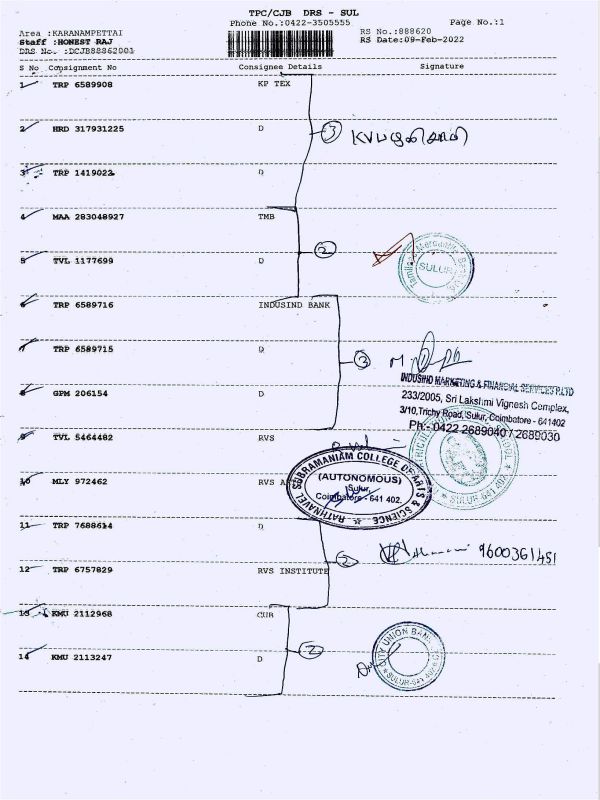 TPC/CJB DRS - SUL
Phone No.:0422-3505555
Page No.:1
Area :KARANAMPETTAI
Staff :HONEST RAJ
DRS No. :DCJB88862001
RS No.:888620
RS Date:09-Feb-2022
S No Consignment No Consignee Details Signature
1 TRP 6589908 KP TEX
2 HRD 317931225 D
3
3 TRP 1419022 D
4 MAA 283048927 TMB
2
5 TVL 1177699 D
SULUR
6 TRP 6589716 INDUSIND BANK
7 TRP 6589715 D
3
INDUSIND MARKETING & FINANCIAL SERVICES P.LTD
8 GPM 206154 D
233/2005, Sri Lakshmi Vignesh Complex,
3/10,Trichy Road, Sulur, Coimbatore - 641402
Ph:- 0422 2689040 / 2689030
9 TVL 5464482 RVS
RATHNAVEL SUBRAMANIAM COLLEGE OF ARTS & SCIENCE
(AUTONOMOUS)
Sulur,
Coimbatore - 641 402.
SULUR-641 402
10 MLY 972462 RVS A
11 TRP 7688614 D
2
9600361451
12 TRP 6757829 RVS INSTITUTE
13 KMU 2112968 CUB
2
CITY UNION BANK
SULUR-641 402
14 KMU 2113247 D